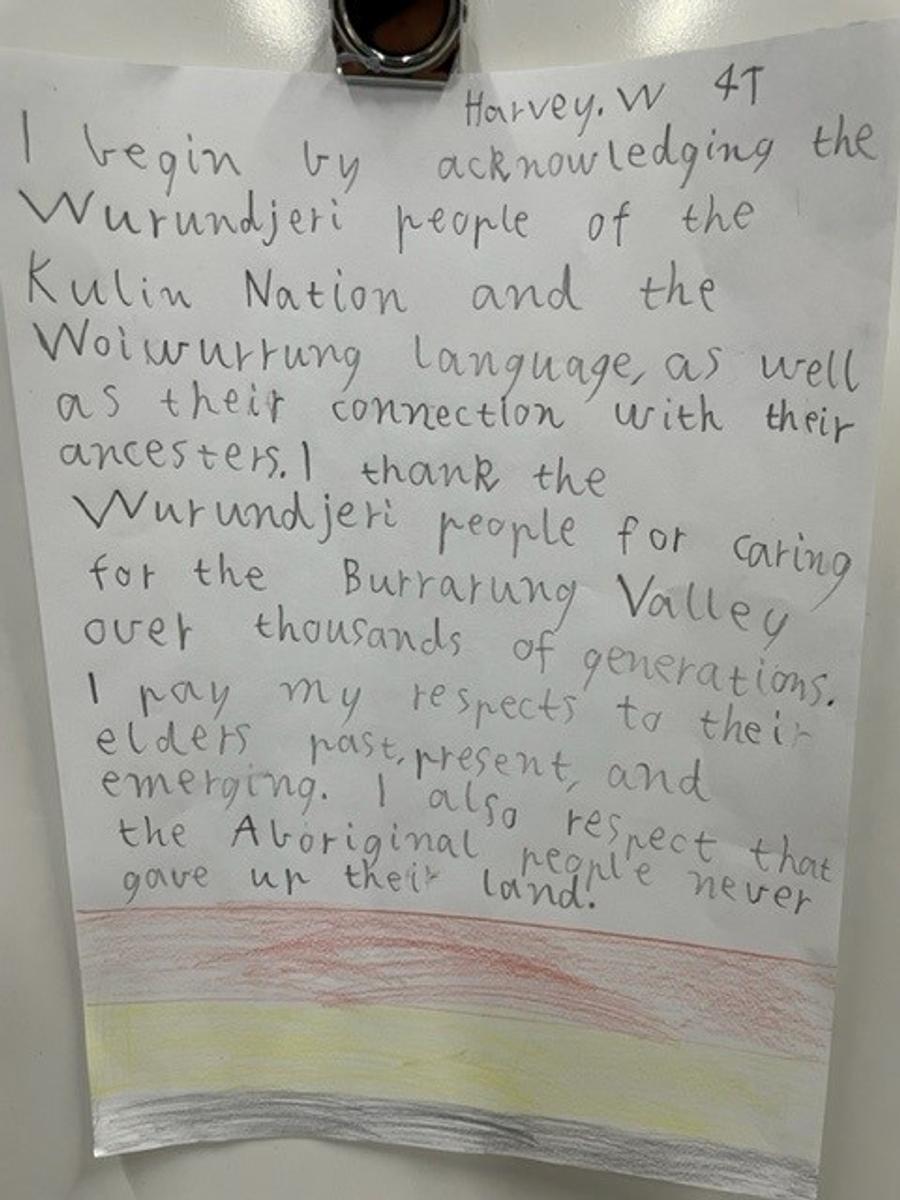 Harvey. W 4T
I begin by acknowledging the
Wurundjeri people of the
Kulin Nation and the
Woiwurrung language, as well
as their connection with their
ancesters. I thank the
Wurundjeri people for caring
for the Burrarung Valley
over thousands of generations.
I pay my respects to their
elders past, present, and
emerging. I also respect that
the Aboriginal people never
gave up their land.